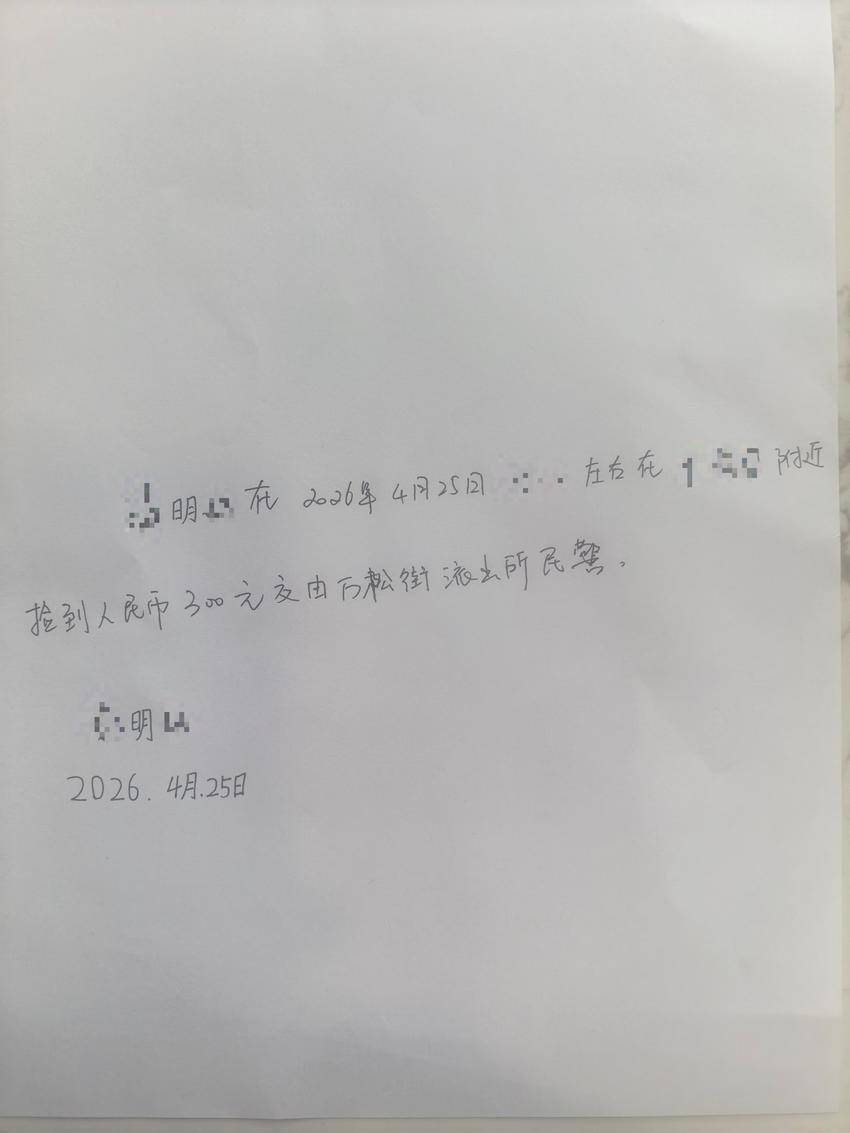 明 在 2026年4月25日 左右在 附近
捡到人民币300元交由万松街派出所民警。
明
2026.4月.25日